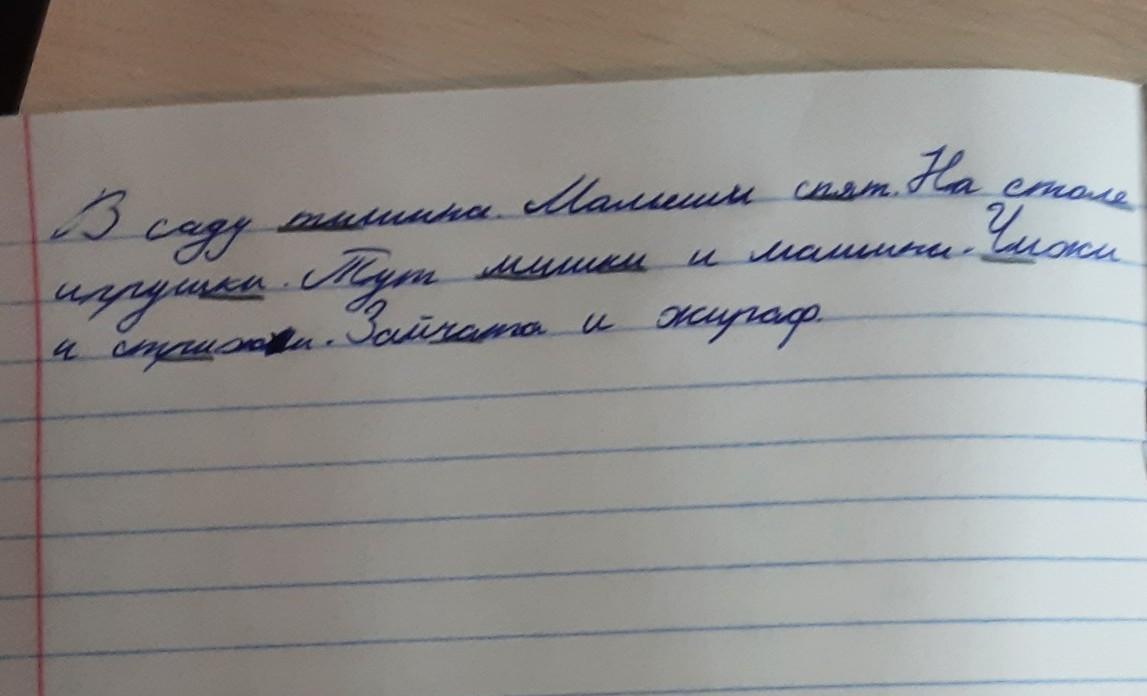 В саду тишина. Малыши спят. На столе
игрушки. Тут мишки и машины. Чижи
и стрижи. Зайчата и жираф.